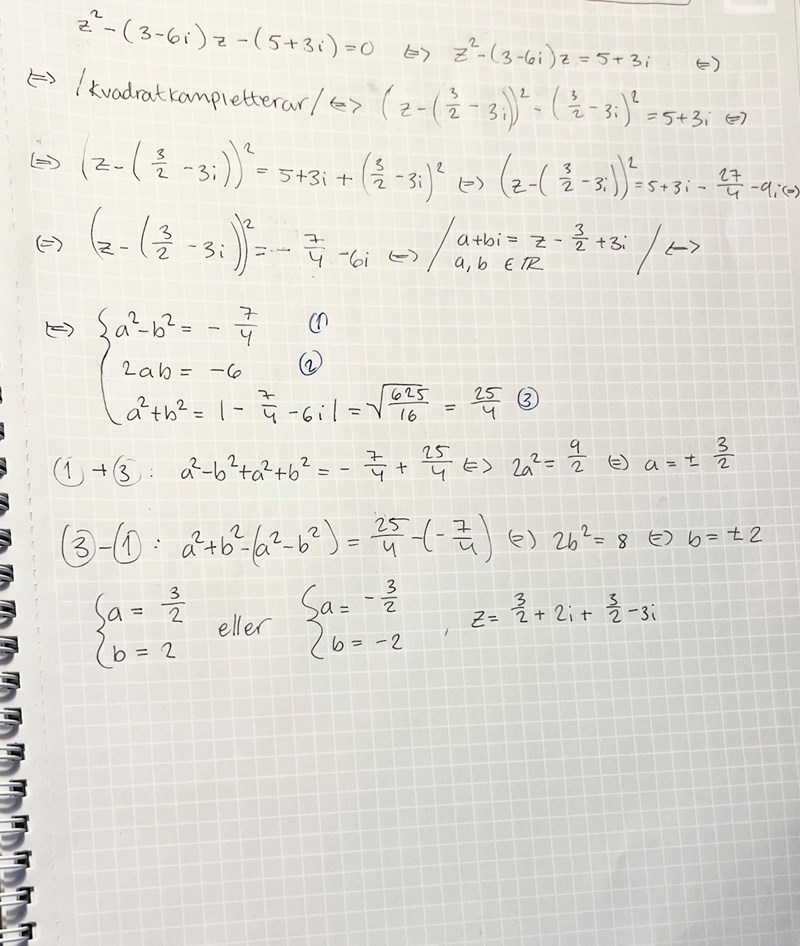 z² - (3-6i)z - (5+3i) = 0 ⇔ z² - (3-6i)z = 5+3i ⇔
⇔ /kvadratkompletterar/ ⇔ (z - (3/2 - 3i))² - (3/2 - 3i)² = 5+3i ⇔
⇔ (z - (3/2 - 3i))² = 5+3i + (3/2 - 3i)² ⇔ (z - (3/2 - 3i))² = 5+3i - 27/4 - 9i ⇔
⇔ (z - (3/2 - 3i))² = - 7/4 - 6i ⇔ / a+bi = z - 3/2 + 3i
a, b ∈ ℝ / ⇔
⇔ { a² - b² = - 7/4 (1)
2ab = -6 (2)
a² + b² = |- 7/4 - 6i| = √(625/16) = 25/4 (3)
(1) + (3): a² - b² + a² + b² = - 7/4 + 25/4 ⇔ 2a² = 9/2 ⇔ a = ± 3/2
(3) - (1): a² + b² - (a² - b²) = 25/4 - (- 7/4) ⇔ 2b² = 8 ⇔ b = ± 2
{ a = 3/2
b = 2 eller { a = - 3/2
b = -2 , z = 3/2 + 2i + 3/2 - 3i